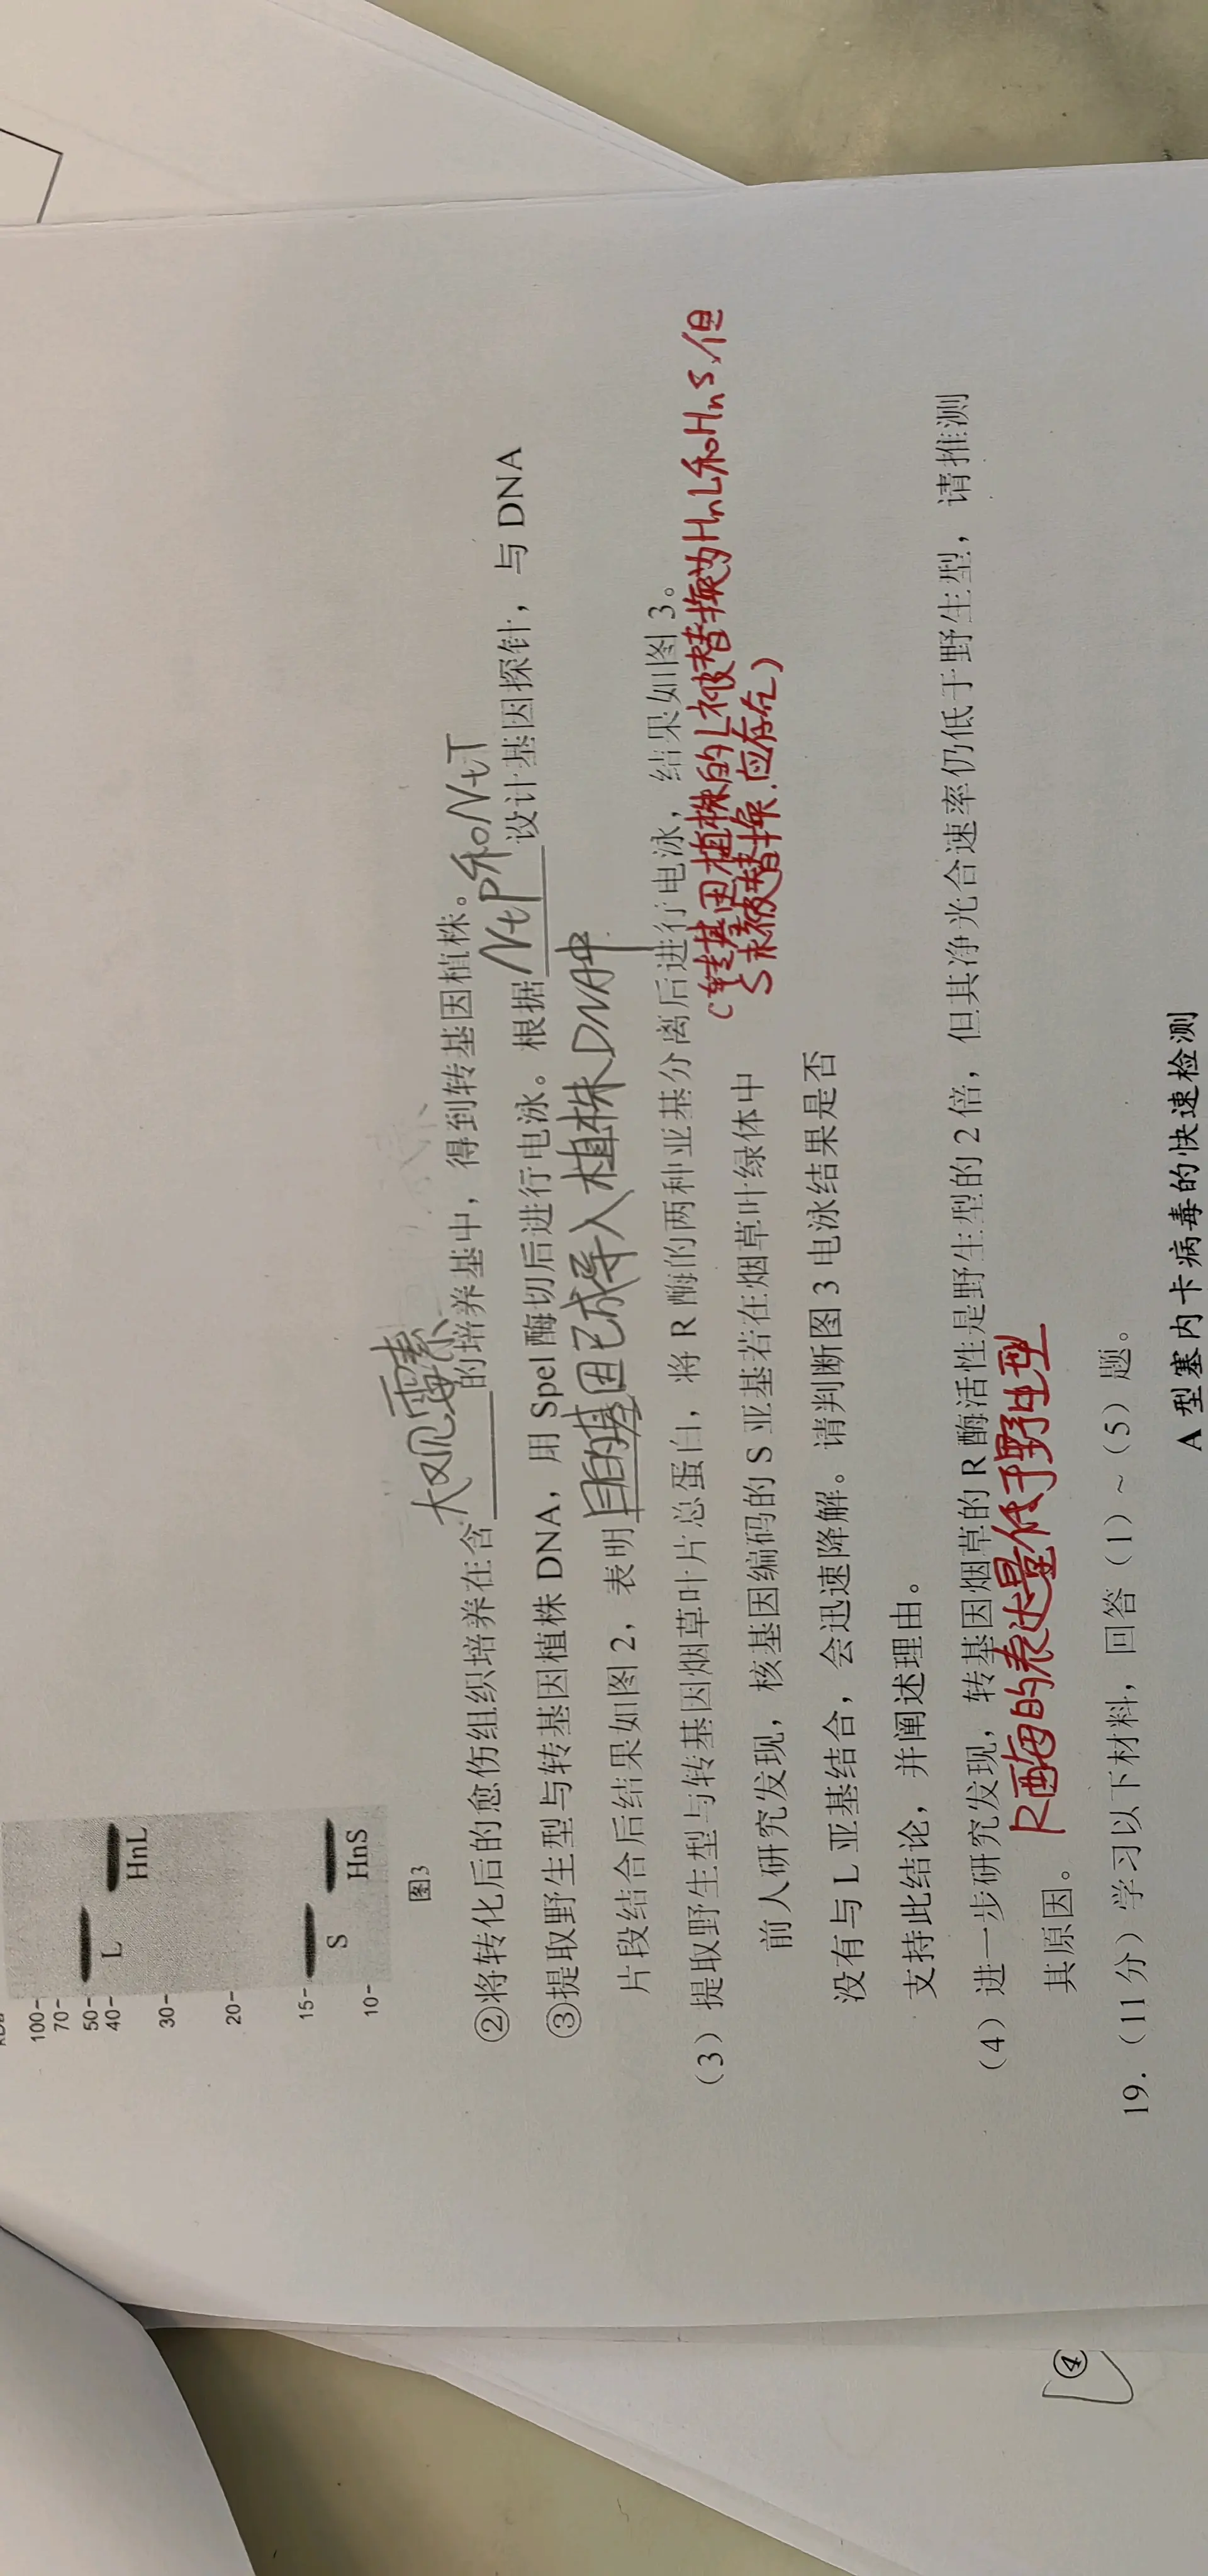 kDa
100-
70-
50-
40-
30-
20-
15-
10-
L
HnL
S
HnS
图3
②将转化后的愈伤组织培养在含大观霉素的培养基中，得到转基因植株。
③提取野生型与转基因植株 DNA，用 SpeI 酶切后进行电泳。根据NtP和NtT设计基因探针，与 DNA
片段结合后结果如图 2，表明目的基因已成导入植株DNA中
（3）提取野生型与转基因烟草叶片总蛋白，将 R 酶的两种亚基分离后进行电泳，结果如图 3。
（转基因植株的L被替换为HnL和HnS，但
S未被替换，应存在）
前人研究发现，核基因编码的 S 亚基若在烟草叶绿体中
没有与 L 亚基结合，会迅速降解。请判断图 3 电泳结果是否
支持此结论，并阐述理由。
（4）进一步研究发现，转基因烟草的 R 酶活性是野生型的 2 倍，但其净光合速率仍低于野生型，请推测
其原因。R酶的表达量低于野生型
19.（11 分）学习以下材料，回答（1）~（5）题。
A 型塞内卡病毒的快速检测
④